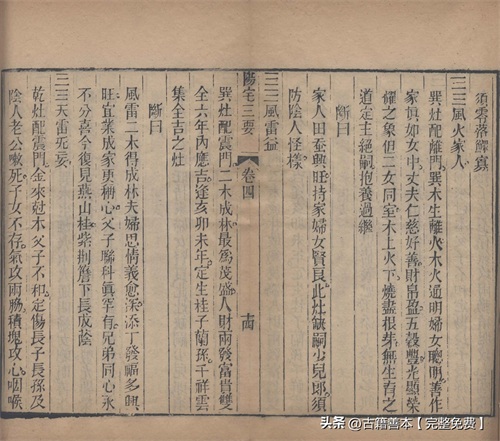 須雲落歸寡
☴☲風火家人
巽灶配離門巽木生離火木火通明婦女聰明善作
家貞如女中丈夫仁慈好善財帛盈五穀豐光顯榮
耀之象但二女同室木上火下燒盡根芽無生育之
道定主絕嗣抱養過繼
斷曰
家人田蚕興旺持家婦女賢良此灶缺嗣少兒郎須
防陰人怪樣
風雷益
陽宅三要
卷四
十四
巽灶配震門二木成林最爲茂盛人財兩發富貴雙
全六年內應吉逢亥卯未年定生桂子蘭孫千祥雲
集全吉之灶
斷曰
風雷二木得成林夫婦恩情義愈深添丁發福多興
旺宜業成家更稱心父子聯科眞罕有兄弟同心永
不分喜今復見燕山桂紫荆簷下長成蔭
天雷无妄
乾灶配震門金來尅木父子不和定傷長子長孫及
陰人老公嗽死子女不存氣攻兩脇積塊攻心咽喉
头条 @古籍善本【完整免费】